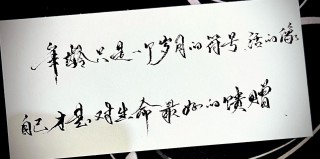 年龄只是一个岁月的符号，活的像
自己才是对生命最好的馈赠